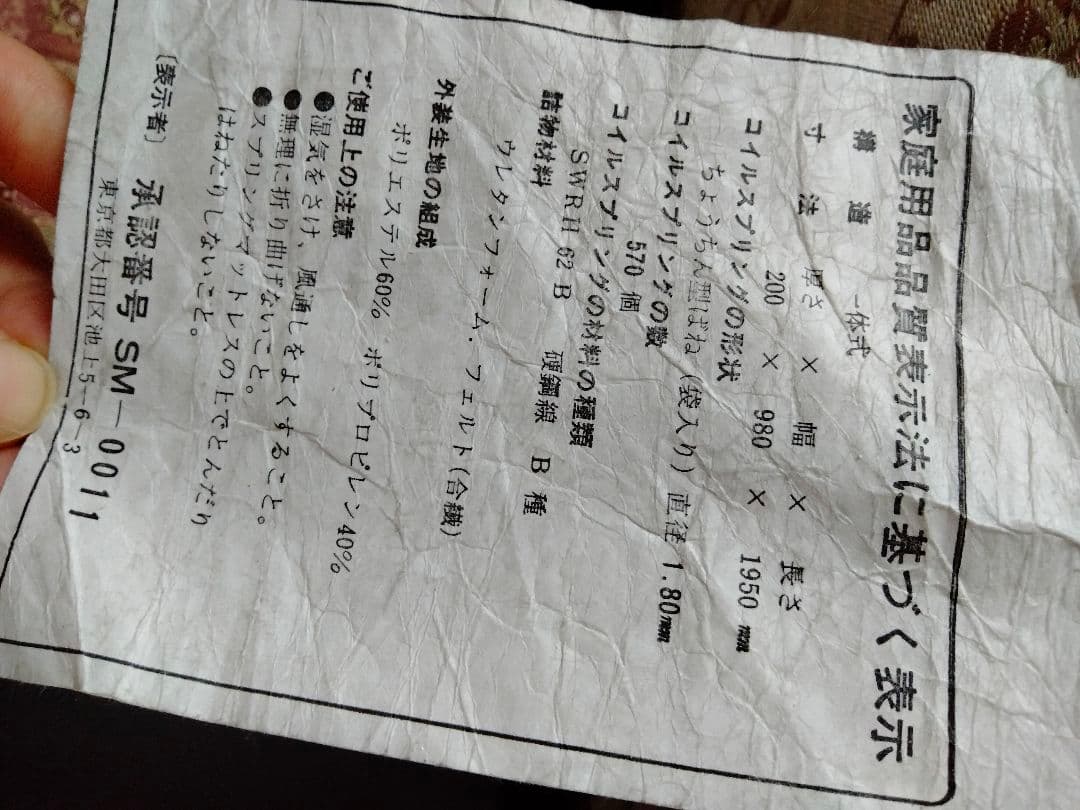 家庭用品品質表示法に基づく表示
構造 一体式
寸法 厚さ × 幅 × 長さ
200 × 980 × 1950 mm
コイルスプリングの形状
ちょうちん型ばね(袋入り) 直径 1.80mm
コイルスプリングの数
570 個
コイルスプリングの材料の種類
SWRH 62 B 硬鋼線 B 種
詰物材料
ウレタンフォーム・フェルト(合繊)
外装生地の組成
ポリエステル60% ポリプロピレン40%
ご使用上の注意
●湿気をさけ、風通しをよくすること。
●無理に折り曲げないこと。
●スプリングマットレスの上でとんだり
はねたりしないこと。
〔表示者〕 承認番号 SM-0011
東京都大田区池上5-6-3